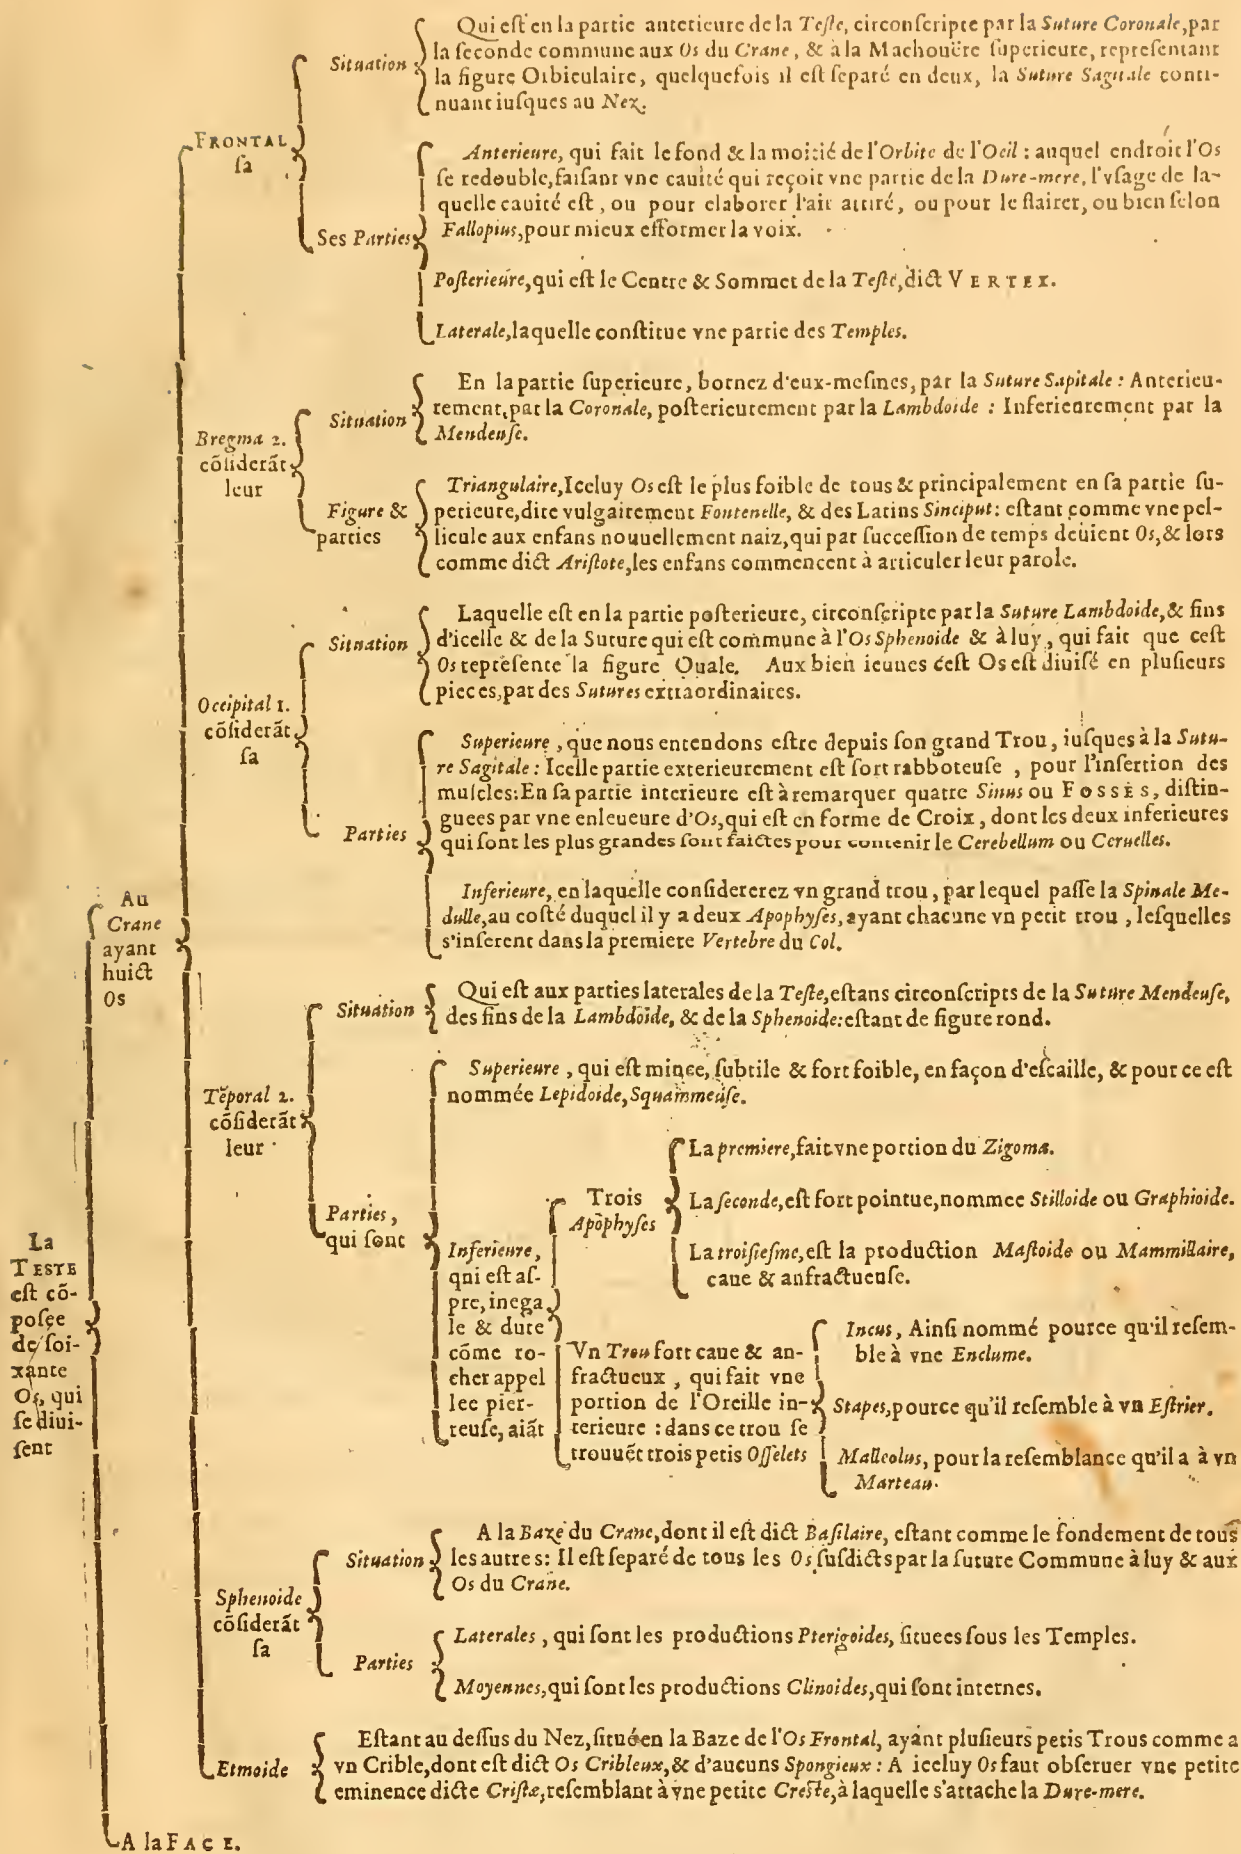 Qui eſt en la partie anterieure de la Teſte, circonſcripte par la Suture Coronale, par
la ſeconde commune aux Os du Crane, & à la Machouëre ſuperieure, repreſentant
la figure Orbiculaire, quelquefois il eſt ſeparé en deux, la Suture Sagitale conti-
nuant iuſques au Nez.
Situation
FRONTAL
ſa
Anterieure, qui fait le fond & la moitié de l'Orbite de l'Oeil : auquel endroit l'Os
ſe redouble, faiſant vne cauité qui reçoit vne partie de la Dure-mere, l'vſage de la-
quelle cauité eſt, ou pour elaborer l'air attiré, ou pour le flairer, ou bien ſelon
Fallopius, pour mieux efformer la voix.
Ses Parties
Poſterieure, qui eſt le Centre & Sommet de la Teſte, dict VERTEX.
Laterale, laquelle conſtitue vne partie des Temples.
En la partie ſuperieure, bornez d'eux-meſmes, par la Suture Sapitale : Anterieu-
rement, par la Coronale, poſterieurement par la Lambdoide : Inferieurement par la
Mendeuſe.
Situation
Bregma 2.
cõſiderãt
leur
Triangulaire, Iceluy Os eſt le plus foible de tous & principalement en ſa partie ſu-
perieure, dite vulgairement Fontenelle, & des Latins Sinciput : eſtant comme vne pel-
licule aux enfans nouuellement naiz, qui par ſucceſſion de temps deuient Os, & lors
comme dict Ariſtote, les enfans commencent à articuler leur parole.
Figure &
parties
Laquelle eſt en la partie poſterieure, circonſcripte par la Suture Lambdoide, & fins
d'icelle & de la Suture qui eſt commune à l'Os Sphenoide & à luy, qui fait que ceſt
Os repreſente la figure Ouale. Aux bien ieunes ceſt Os eſt diuiſé en pluſieurs
pieces, par des Sutures extraordinaires.
Situation
Occipital 1.
cõſiderãt
ſa
Superieure, que nous entendons eſtre depuis ſon grand Trou, iuſques à la Sutu-
re Sagitale : Icelle partie exterieurement eſt fort rabboteuſe, pour l'inſertion des
muſcles : En ſa partie interieure eſt à remarquer quatre Sinus ou FOSSES, diſtin-
guees par vne enleueure d'Os, qui eſt en forme de Croix, dont les deux inferieures
qui ſont les plus grandes ſont faictes pour contenir le Cerebellum ou Ceruelles.
Parties
Inferieure, en laquelle conſidererez vn grand trou, par lequel paſſe la Spinale Me-
dulle, au coſté duquel il y a deux Apophyſes, ayant chacune vn petit trou, leſquelles
s'inſerent dans la premiere Vertebre du Col.
Au
Crane
ayant
huict
Os
Qui eſt aux parties laterales de la Teſte, eſtans circonſcripts de la Suture Mendeuſe,
des fins de la Lambdoide, & de la Sphenoide : eſtant de figure rond.
Situation
Tẽporal 2.
cõſiderãt
leur
Superieure, qui eſt mince, ſubtile & fort foible, en façon d'eſcaille, & pour ce eſt
nommée Lepidoide, Squammeuſe.
Parties,
qui ſont
Inferieure,
qui eſt aſ-
pre, inega
le & dure
cõme ro-
cher appel
lee pier-
reuſe, aiãt
Trois
Apophyſes
La premiere, fait vne portion du Zigoma.
La ſeconde, eſt fort pointue, nommee Stilloide ou Graphioide.
La troiſieſme, eſt la production Maſtoide ou Mammillaire,
caue & anfractueuſe.
Vn Trou fort caue & an-
fractueux, qui fait vne
portion de l'Oreille in-
terieure : dans ce trou ſe
trouuẽt trois petis Oſſelets
Incus, Ainſi nommé pource qu'il reſem-
ble à vne Enclume.
Stapes, pource qu'il reſemble à vn Eſtrier.
Malleolus, pour la reſemblance qu'il a à vn
Marteau.
La
TESTE
eſt cõ-
poſée
de ſoi-
xante
Os, qui
ſe diui-
ſent
A la Baze du Crane, dont il eſt dict Baſilaire, eſtant comme le fondement de tous
les autres : Il eſt ſeparé de tous les Os ſuſdicts par la ſuture Commune à luy & aux
Os du Crane.
Situation
Sphenoide
cõſiderãt
ſa
Laterales, qui ſont les productions Pterigoides, ſituees ſous les Temples.
Parties
Moyennes, qui ſont les productions Clinoides, qui ſont internes.
Eſtant au deſſus du Nez, ſitué en la Baze de l'Os Frontal, ayant pluſieurs petis Trous comme a
vn Crible, dont eſt dict Os Cribleux, & d'aucuns Spongieux : A iceluy Os faut obſeruer vne petite
eminence dicte Criſtæ, reſemblant à vne petite Creſte, à laquelle s'attache la Dure-mere.
Etmoide
A la FACE.